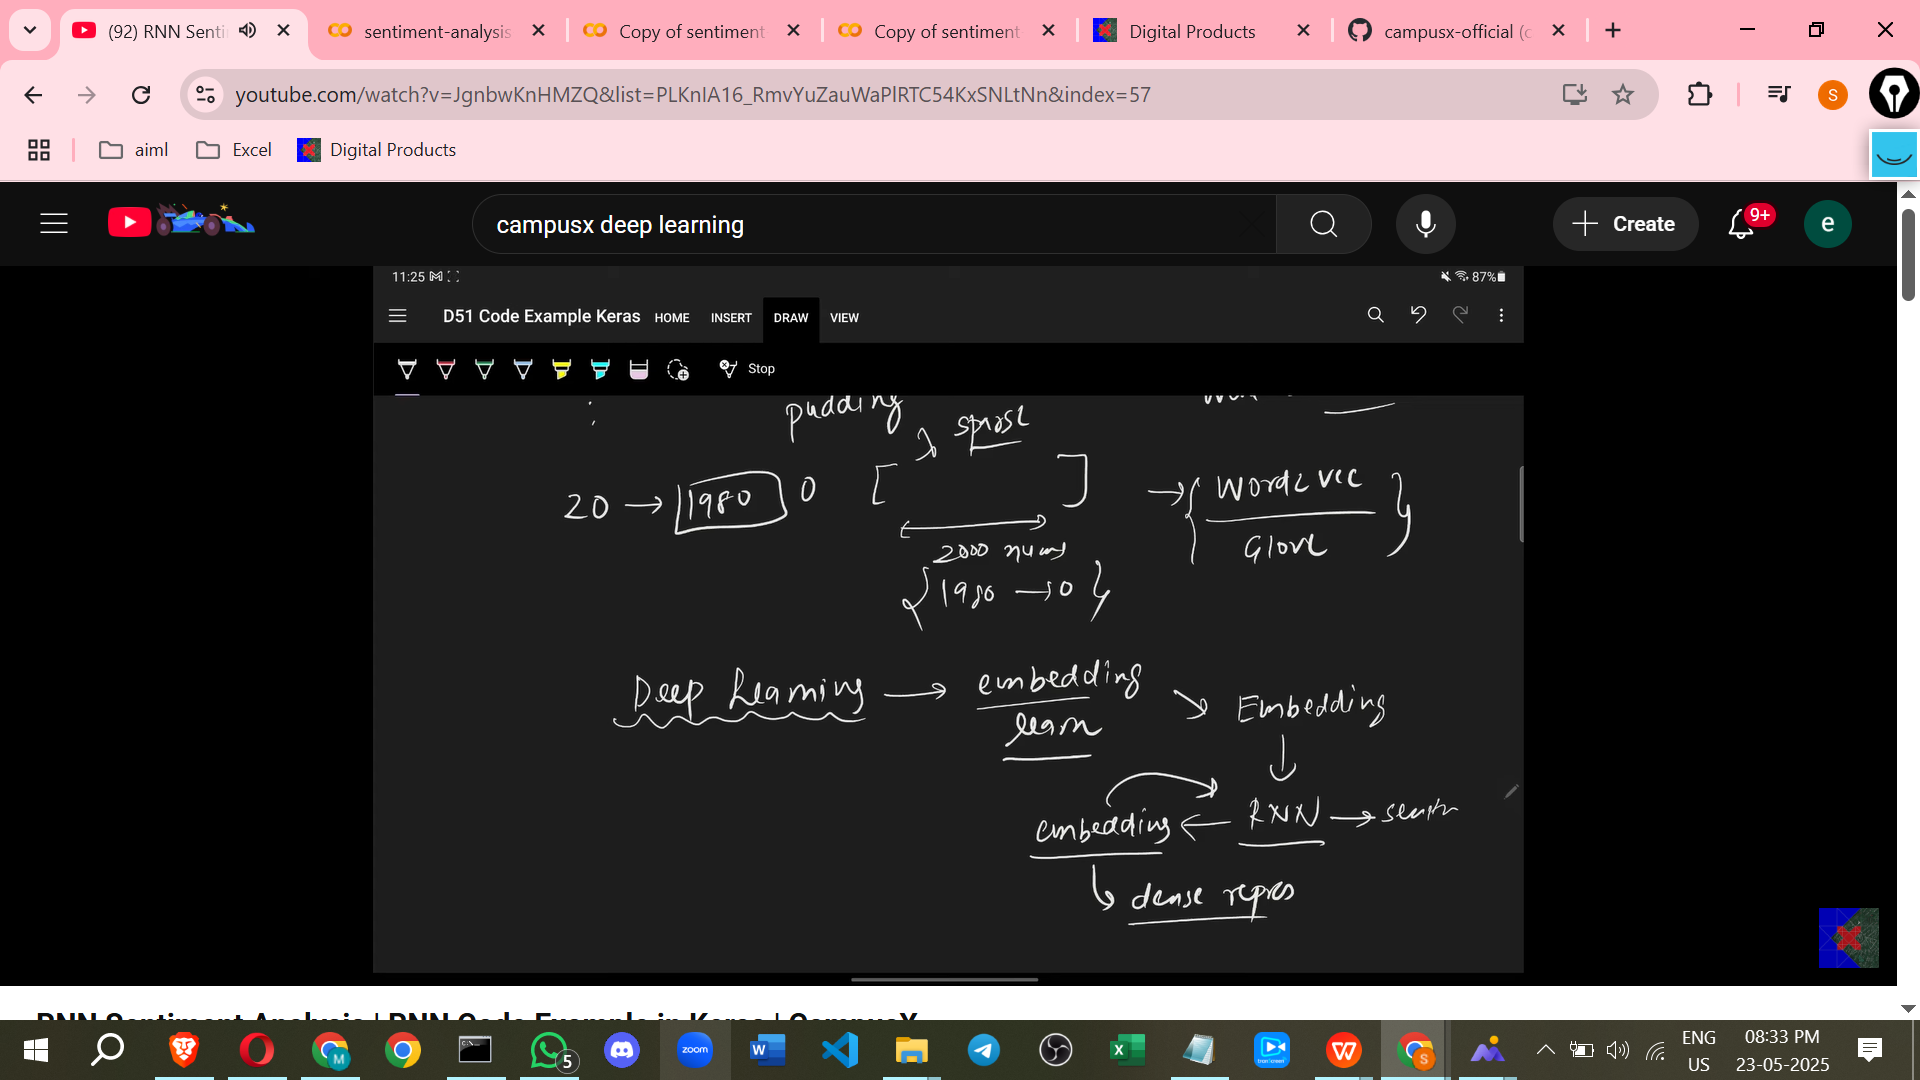 (92) RNN Senti
sentiment-analysis
Copy of sentiment
Copy of sentiment
Digital Products
campusx-official (c
youtube.com/watch?v=JgnbwKnHMZQ&list=PLKnIA16_RmvYuZauWaPlRTC54KxSNLtNn&index=57
S
aiml
Excel
Digital Products
campusx deep learning
Create
9+
e
11:25
87%
D51 Code Example Keras
HOME
INSERT
DRAW
VIEW
Stop
pudding
sparse
20 → 1980 0 [ ]
→ { Word2vec }
Glove
2000 nums
{ 1980 → 0 }
Deep Learning → embedding
learn
Embedding
embedding ← RNN →
dense repres
RNN Sentiment Analysis | RNN Code Example in Keras | CampusX
M
5
zoom
S
ENG
US
08:33 PM
23-05-2025